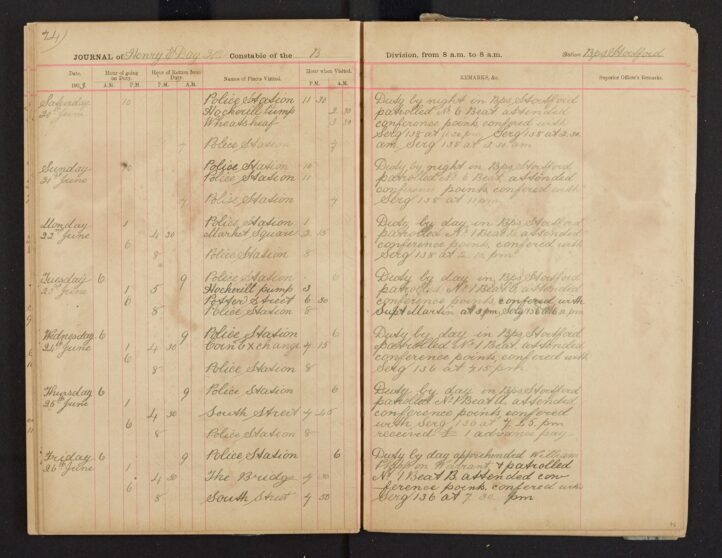 JOURNAL of Henry Day Constable of the B
Division, from 8 a.m. to 8 a.m. Station Bps Stortford
Date. Hour of going on Duty. Hour of Return from Duty. Names of Places Visited. Hour when Visited. REMARKS, &c. Superior Officer's Remarks.
A.M. P.M. P.M. A.M. P.M. A.M.
Saturday 10 Police Station 11 30 Duty by night in Bps Stortford
20th June Hockerill Pump 2 30 patrolled No 6 Beat attended
Wheatsheaf 3 30 conference points confered with
Serg 138 at 11.30 pm Serg 138 at 2.30
Police Station 7 am Serg 138 at 3.30 am
Sunday Police Station 10 Duty by night in Bps Stortford
21st June Police Station 11 patrolled No 6 Beat attended
conference points confered with
7 Police Station 7 Serg 138 at 11 pm
Monday 1 Police Station 1 Duty by day in Bps Stortford
22nd June 4 30 Market Square 2 15 patrolled No 1 Beat attended
6 conference points, confered with
8 Police Station 8 Serg 138 at 2.15 pm
Tuesday 6 9 Police Station 6 Duty by day in Bps Stortford
23rd June 1 5 Hockerill pump 3 patrolled No 1 Beat B attended
6 Potter Street 6 30 conference points confered with
8 Police Station 8 Supt Martin at 3 pm, Serg 136 at 6.30 pm
Wednesday 6 9 Police Station 6 Duty by day in Bps Stortford
24th June 1 4 30 Corn Exchange 4 15 patrolled No 1 Beat attended
6 conference points, confered with
8 Police Station 8 Serg 136 at 4.15 pm
Thursday 6 9 Police Station 6 Duty by day in Bps Stortford
25th June 1 patrolled No 1 Beat attended
4 30 South Street 7 45 conference points, confered
6 with Serg 136 at 7.45 pm
8 Police Station 8 received £1 advance pay
Friday 6 9 Police Station 6 Duty by day apprehended William
26th June 1 on Warrant, & patrolled
4 30 The Bridge 4 30 No 1 Beat B. attended con-
6 ference points, confered with
8 South Street 7 30 Serg 136 at 7.30 pm